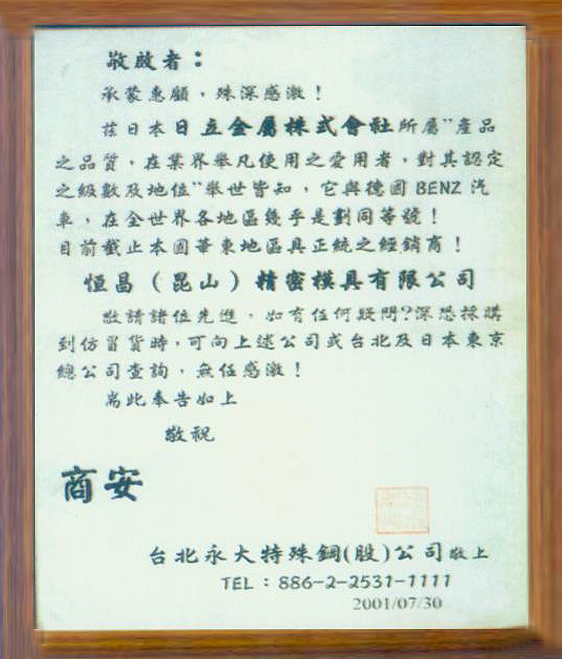 敬啟者：
承蒙惠顧，殊深感激！
茲日本日立金屬株式會社所屬"產品
之品質，在業界舉凡使用之愛用者，對其認定
之級數及地位"舉世皆知，它與德國 BENZ 汽
車，在全世界各地區幾乎是劃同等號！
目前截止本國華東地區具正統之經銷商！
恒昌（昆山）精密模具有限公司
敬請諸位先進，如有任何疑問?深恐採購
到仿冒貨時，可向上述公司或台北及日本東京
總公司查詢，無任感激！
耑此奉告如上
敬祝
商安
台北永大特殊鋼(股)公司敬上
TEL：886-2-2531-1111
2001/07/30